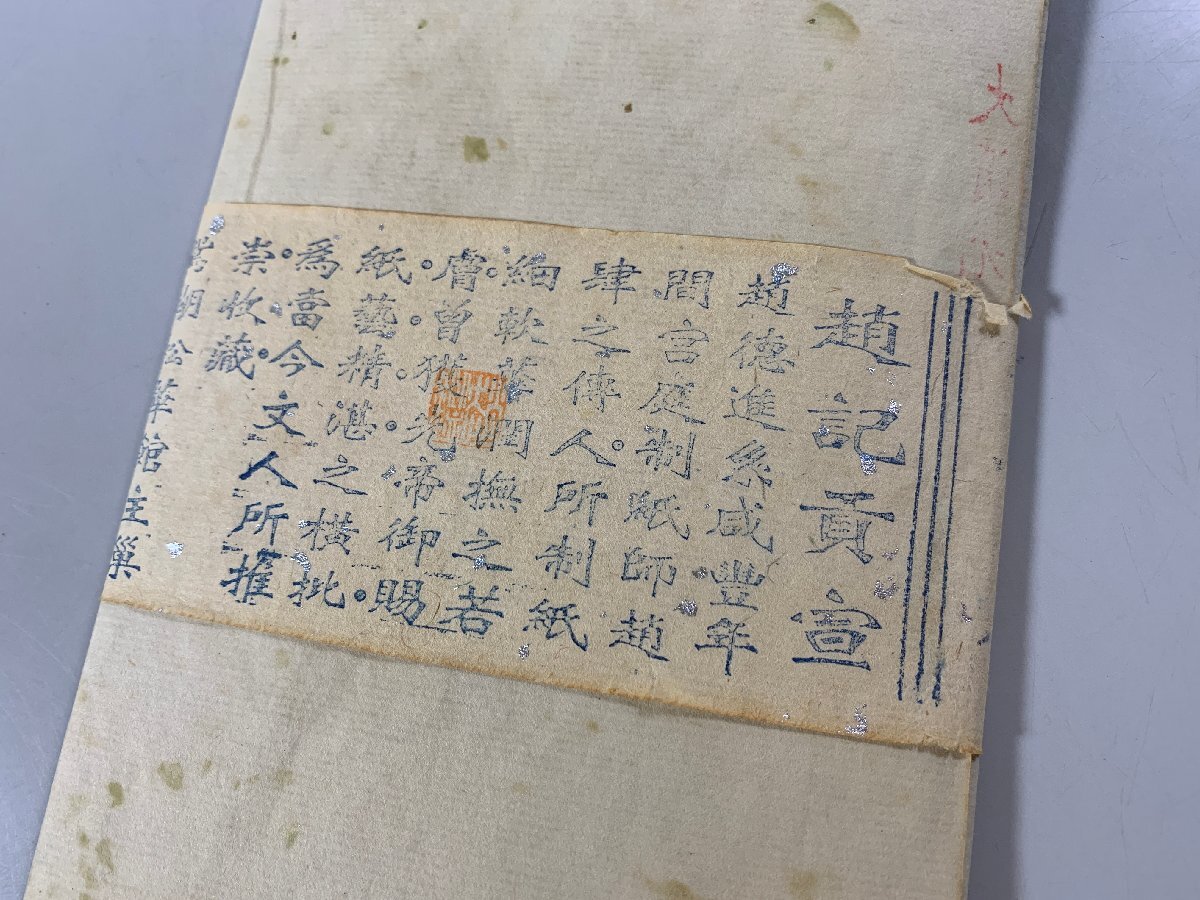 趙記貢宣
趙德進系咸豐年
間宮庭制紙師趙
肆之傳人所制紙
細軟華潤撫之若
膚曾獲光帝御賜
紙藝精湛之横批
為當今文人所推
崇收藏
朗公華館主巢
大